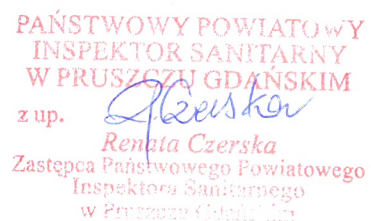 PAŃSTWOWY POWIATOWY
INSPEKTOR SANITARNY
W PRUSZCZU GDAŃSKIM
z up.
Renata Czerska
Zastępca Państwowego Powiatowego
Inspektora Sanitarnego
w Pruszczu Gdańskim